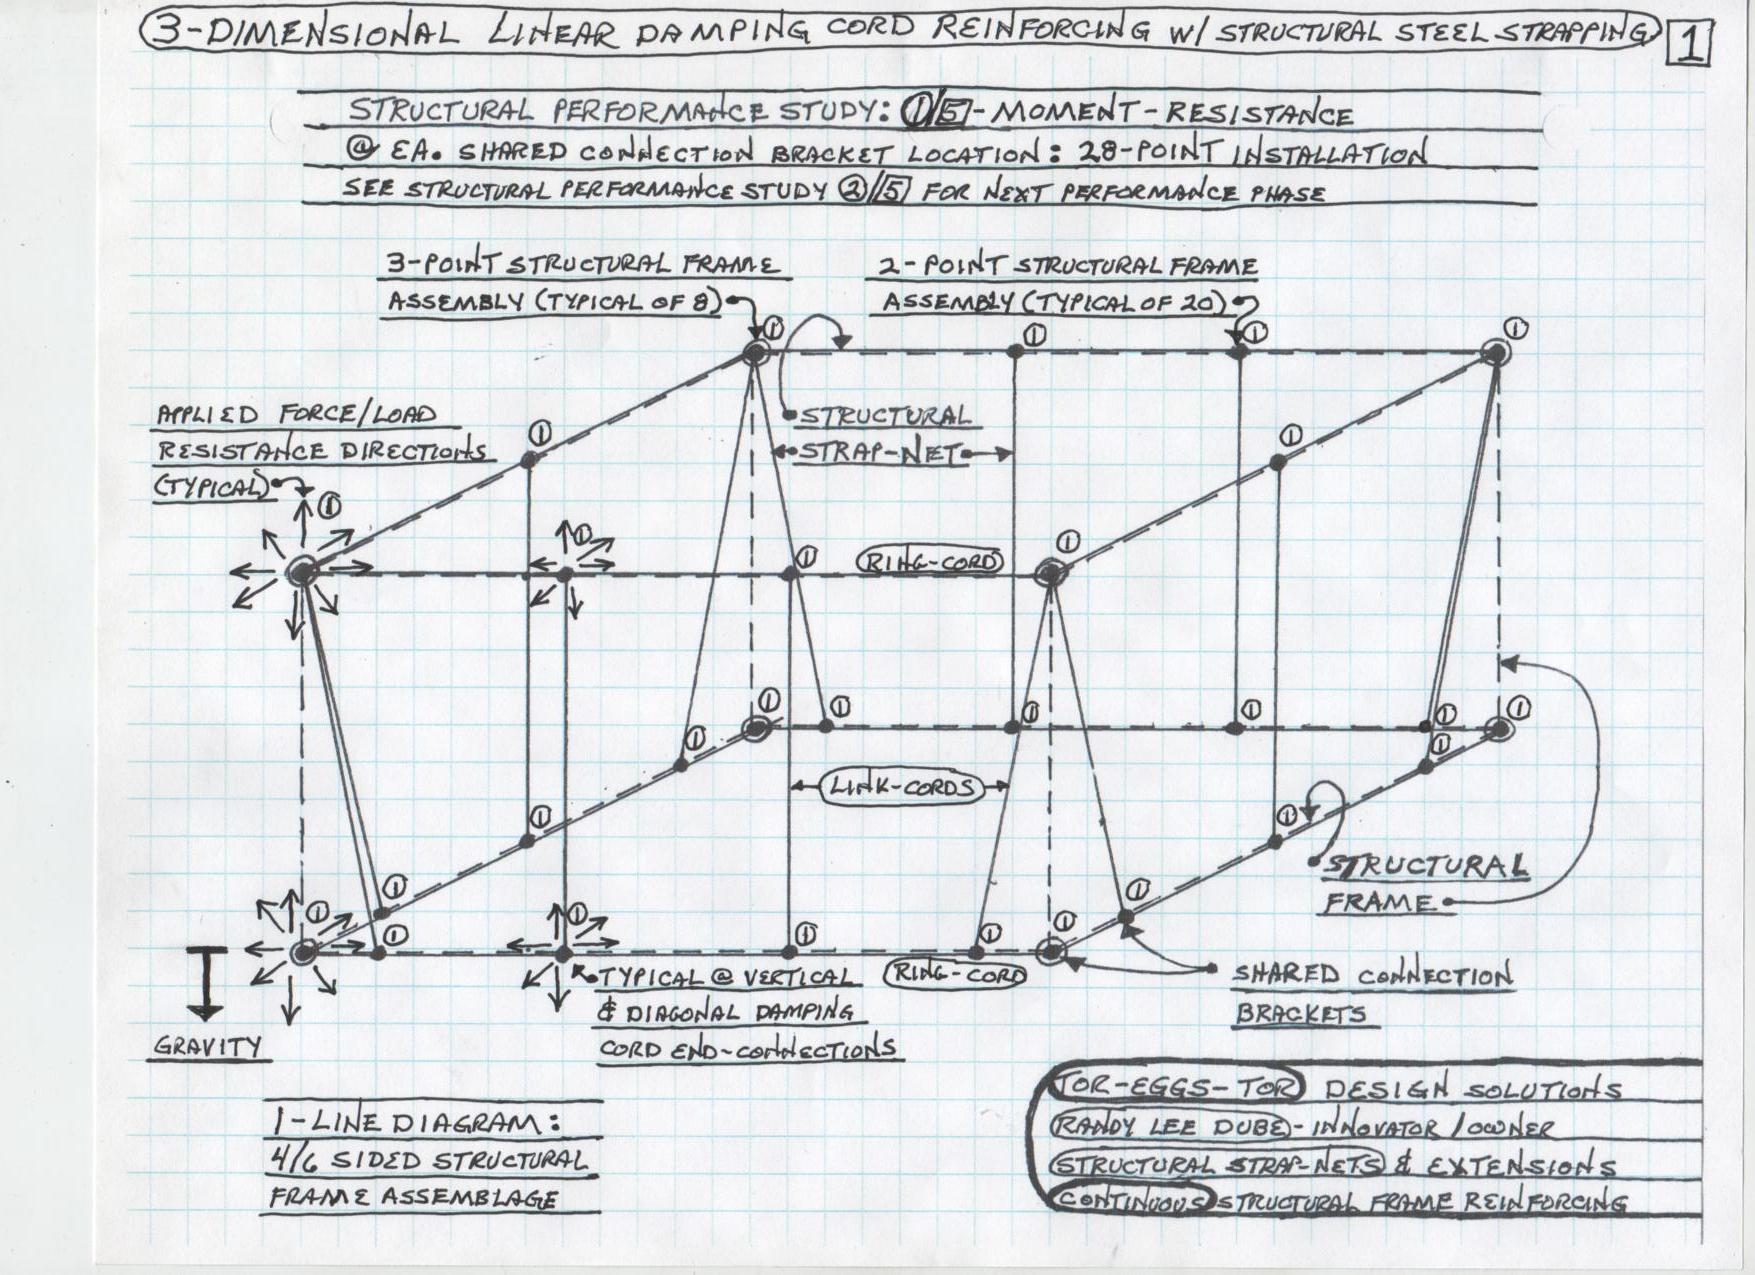 3-DIMENSIONAL LINEAR DAMPING CORD REINFORCING W/ STRUCTURAL STEEL STRAPPING
1
STRUCTURAL PERFORMANCE STUDY: 1/5 - MOMENT-RESISTANCE
@ EA. SHARED CONNECTION BRACKET LOCATION: 28-POINT INSTALLATION
SEE STRUCTURAL PERFORMANCE STUDY 2/5 FOR NEXT PERFORMANCE PHASE
3-POINT STRUCTURAL FRAME
ASSEMBLY (TYPICAL OF 8)
2-POINT STRUCTURAL FRAME
ASSEMBLY (TYPICAL OF 20)
1
1
1
1
APPLIED FORCE/LOAD
RESISTANCE DIRECTIONS
(TYPICAL)
STRUCTURAL
STRAP-NET
1
1
1
1
1
1
RING-CORD
1
1
1
1
1
1
1
1
LINK-CORDS
1
1
STRUCTURAL
FRAME
1
1
1
1
1
1
1
1
RING-CORD
TYPICAL @ VERTICAL
& DIAGONAL DAMPING
CORD END-CONNECTIONS
SHARED CONNECTION
BRACKETS
GRAVITY
1-LINE DIAGRAM:
4/6 SIDED STRUCTURAL
FRAME ASSEMBLAGE
TOR-EGGS-TOR DESIGN SOLUTIONS
RANDY LEE DUBE - INNOVATOR / OWNER
STRUCTURAL STRAP-NETS & EXTENSIONS
CONTINUOUS STRUCTURAL FRAME REINFORCING